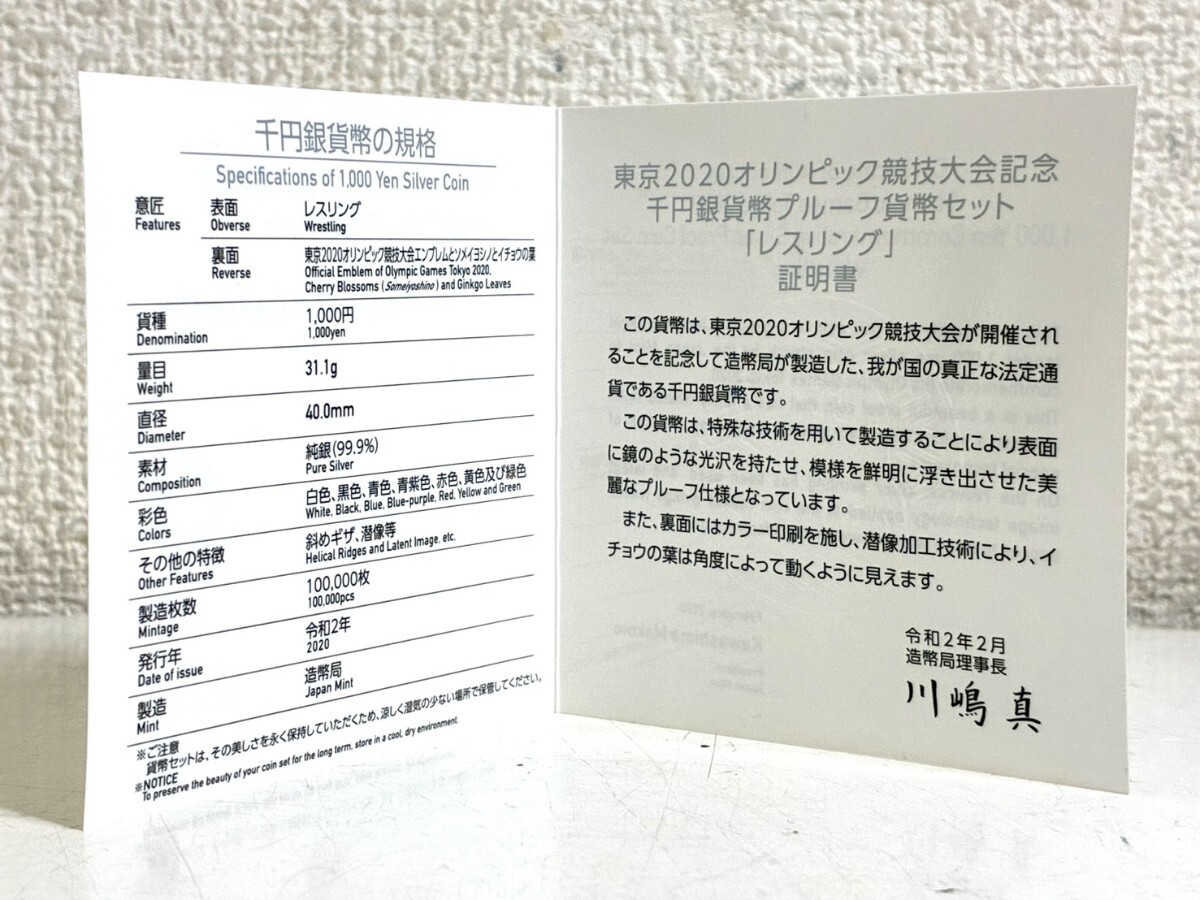 千円銀貨幣の規格
Specifications of 1,000 Yen Silver Coin
意匠 表面 レスリング
Features Obverse Wrestling
裏面 東京2020オリンピック競技大会エンブレムとソメイヨシノとイチョウの葉
Reverse Official Emblem of Olympic Games Tokyo 2020,
Cherry Blossoms (Someiyoshino) and Ginkgo Leaves
貨種 1,000円
Denomination 1,000yen
量目 31.1g
Weight
直径 40.0mm
Diameter
素材 純銀(99.9%)
Composition Pure Silver
彩色 白色、黒色、青色、青紫色、赤色、黄色及び緑色
Colors White, Black, Blue, Blue-purple, Red, Yellow and Green
その他の特徴 斜めギザ、潜像等
Other Features Helical Ridges and Latent Image, etc.
製造枚数 100,000枚
Mintage 100,000pcs
発行年 令和2年
Date of issue 2020
製造 造幣局
Mint Japan Mint
※ご注意
貨幣セットは、その美しさを永く保持していただくため、涼しく湿気の少ない場所で保管してください。
※NOTICE
To preserve the beauty of your coin set for the long term, store in a cool, dry environment.
東京2020オリンピック競技大会記念
千円銀貨幣プルーフ貨幣セット
「レスリング」
証明書
この貨幣は、東京2020オリンピック競技大会が開催され
ることを記念して造幣局が製造した、我が国の真正な法定通
貨である千円銀貨幣です。
この貨幣は、特殊な技術を用いて製造することにより表面
に鏡のような光沢を持たせ、模様を鮮明に浮き出させた美
麗なプルーフ仕様となっています。
また、裏面にはカラー印刷を施し、潜像加工技術により、イ
チョウの葉は角度によって動くように見えます。
令和2年2月
造幣局理事長
川嶋 真